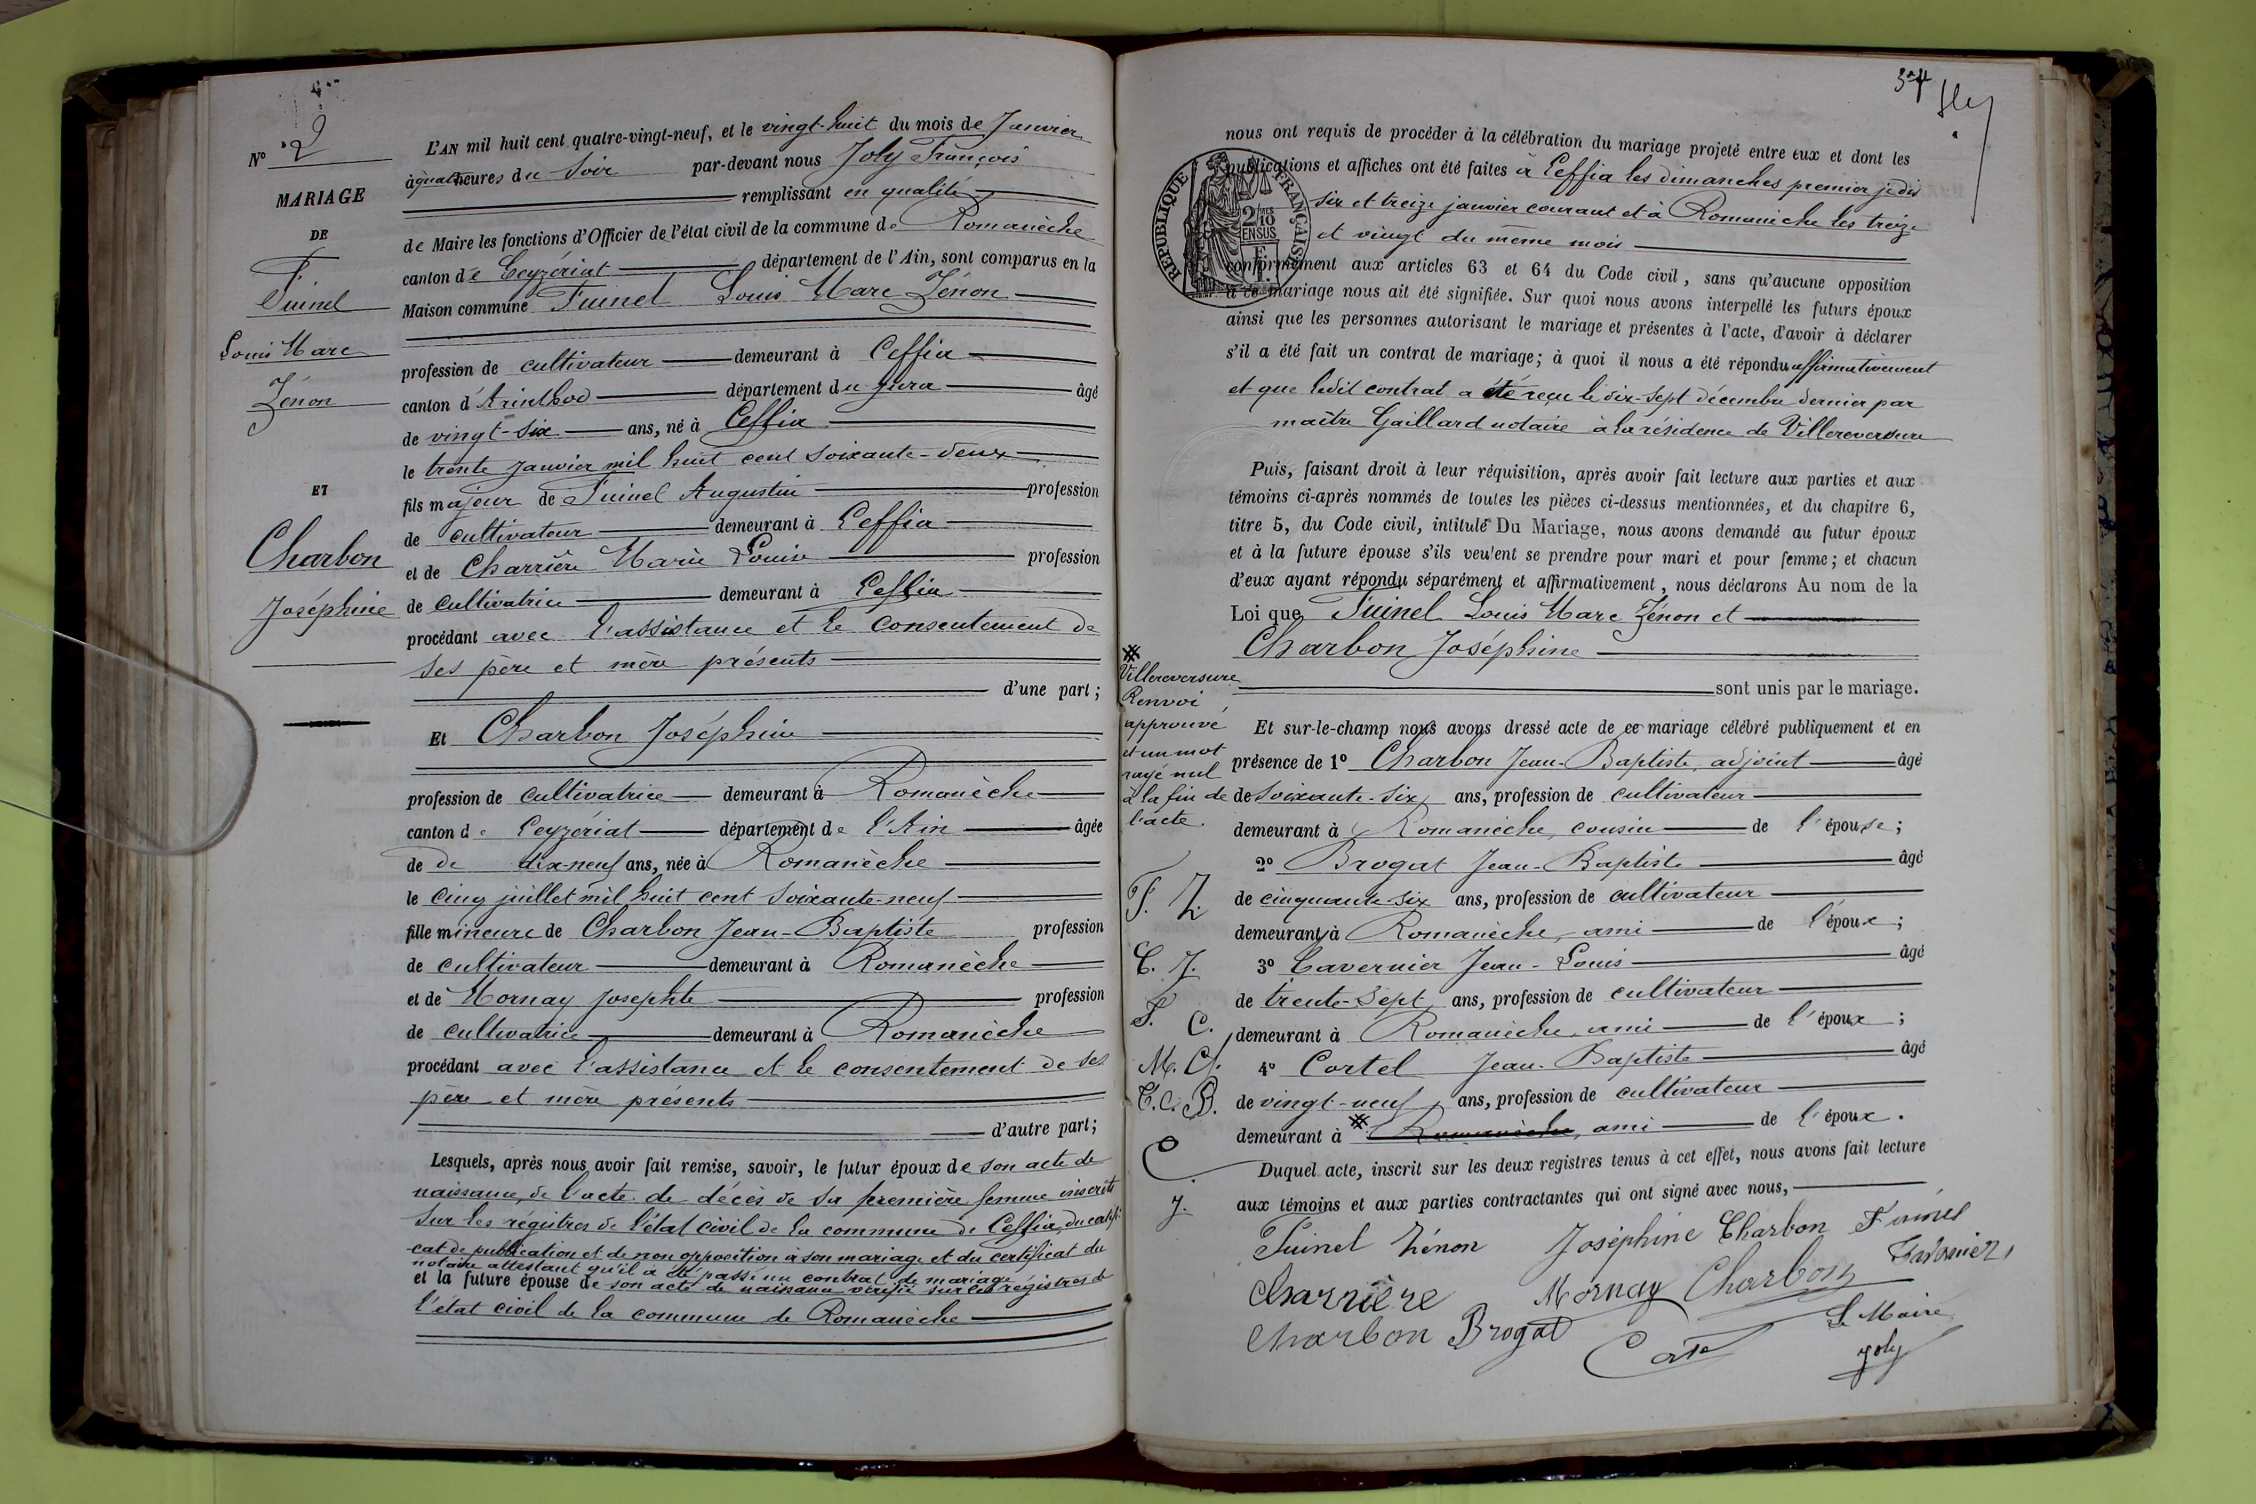 N° 2
MARIAGE
DE
Tuinel
Louis Marc
Zénon
ET
Charbon
Joséphine
L'AN mil huit cent quatre-vingt-neuf, et le vingt-huit du mois de Janvier
à quatre heures du soir par-devant nous Joly François
remplissant en qualité
de Maire les fonctions d'Officier de l'état civil de la commune de Romanèche
canton de Ceyzériat département de l'Ain, sont comparus en la
Maison commune Tuinel Louis Marc Zénon
profession de cultivateur demeurant à Ceffia
canton d'Arinthod département du Jura âgé
de vingt-six ans, né à Ceffia
le trente janvier mil huit cent soixante-deux
fils majeur de Tuinel Augustin profession
de cultivateur demeurant à Ceffia
et de Charrière Marie Louise profession
de cultivatrice demeurant à Ceffia
procédant avec l'assistance et le consentement de
ses père et mère présents
d'une part;
Et Charbon Joséphine
profession de cultivatrice demeurant à Romanèche
canton de Ceyzériat département de l'Ain âgée
de de dix-neuf ans, née à Romanèche
le cinq juillet mil huit cent soixante-neuf
fille mineure de Charbon Jean-Baptiste profession
de cultivateur demeurant à Romanèche
et de Mornay Josephte profession
de cultivatrice demeurant à Romanèche
procédant avec l'assistance et le consentement de ses
père et mère présents
d'autre part;
Lesquels, après nous avoir fait remise, savoir, le futur époux de son acte de
naissance, de l'acte de décès de sa première femme inscrits
sur les régistres de l'état civil de la commune de Ceffia, du certifi-
cat de publication et de non opposition à son mariage et du certificat du
notaire attestant qu'il a été passé un contrat de mariage
et la future épouse de son acte de naissance vérifié sur les régistres de
l'état civil de la commune de Romanèche
34
nous ont requis de procéder à la célébration du mariage projeté entre eux et dont les
publications et affiches ont été faites à Ceffia les dimanches premier jedis
six et treize janvier courant et à Romanèche les treize
et vingt du même mois
conformément aux articles 63 et 64 du Code civil, sans qu'aucune opposition
à ce mariage nous ait été signifiée. Sur quoi nous avons interpellé les futurs époux
ainsi que les personnes autorisant le mariage et présentes à l'acte, d'avoir à déclarer
s'il a été fait un contrat de mariage; à quoi il nous a été répondu affirmativement
et que ledit contrat a été reçu le dix-sept décembre dernier par
maître Gaillard notaire à la résidence de Villereversure
Puis, faisant droit à leur réquisition, après avoir fait lecture aux parties et aux
témoins ci-après nommés de toutes les pièces ci-dessus mentionnées, et du chapitre 6,
titre 5, du Code civil, intitulé Du Mariage, nous avons demandé au futur époux
et à la future épouse s'ils veulent se prendre pour mari et pour femme; et chacun
d'eux ayant répondu séparément et affirmativement, nous déclarons Au nom de la
Loi que Tuinel Louis Marc Zénon et
Charbon Joséphine
sont unis par le mariage.
Et sur-le-champ nous avons dressé acte de ce mariage célébré publiquement et en
présence de 1° Charbon Jean-Baptiste, adjoint âgé
de soixante-six ans, profession de cultivateur
demeurant à Romanèche, cousin de l'épouse;
2° Brogat Jean-Baptiste âgé
de cinquante-six ans, profession de cultivateur
demeurant à Romanèche, ami de l'époux;
3° Tavernier Jean-Louis âgé
de trente-sept ans, profession de cultivateur
demeurant à Romanèche, ami de l'époux;
4° Cortel Jean-Baptiste âgé
de vingt-neuf ans, profession de cultivateur
demeurant à Romanèche, ami de l'époux.
Duquel acte, inscrit sur les deux registres tenus à cet effet, nous avons fait lecture
aux témoins et aux parties contractantes qui ont signé avec nous,
Tuinel Zénon Joséphine Charbon Tuinel
Charrière Mornay Charbon Tavernier
Charbon Brogat
Le Maire
Joly
Villereversure
Renvoi
approuvé
et un mot
rayé nul
à la fin de
l'acte.
T. Z.
C. J.
T. C.
M. C.
T. C. B.
C.
J.
RÉPUBLIQUE FRANÇAISE
2/10 EN SUS